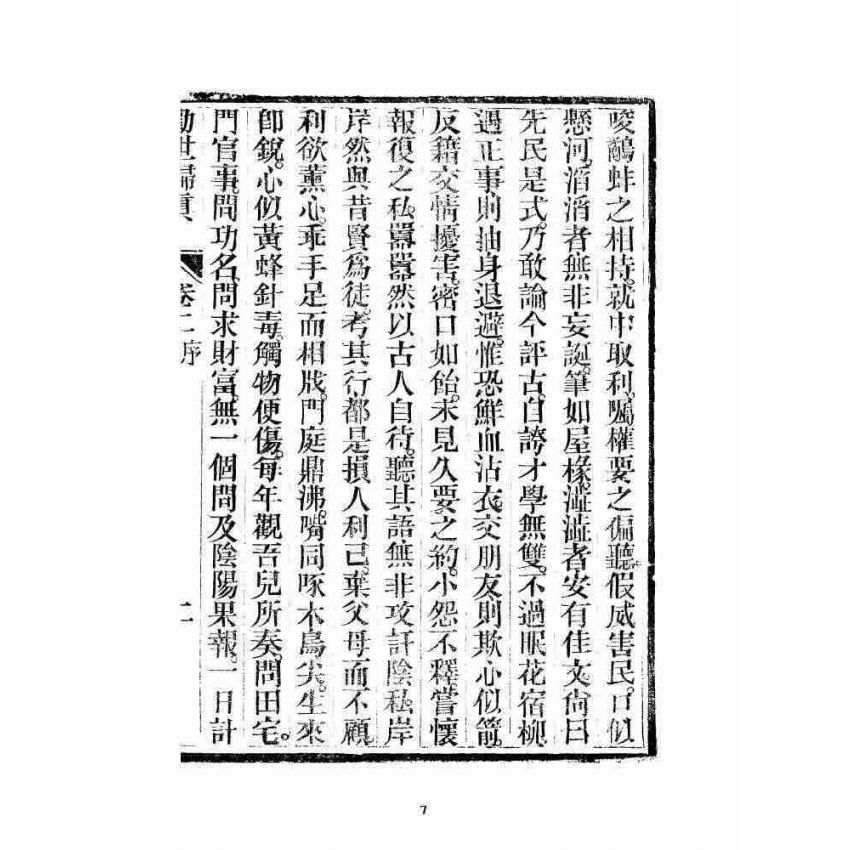 唆鷸蚌之相持。就中取利。囑權要之偏聽。假威害民。口似
懸河。滔滔者無非妄誕。筆如屋椽。滋滋者安有佳文。尙曰
先民是式。乃敢論今評古。自誇才學無雙。不過眠花宿柳。
遇正事則抽身退避。惟恐鮮血沾衣。交朋友則欺心似箭。
反籍交情擾害。密口如飴。未見久要之約。小怨不釋。嘗懷
報復之私。囂囂然以古人自待。聽其語無非攻訐陰私。岸
岸然與昔賢爲徒。考其行都是損人利己。棄父母而不顧。
利欲薰心。乖手足而相戕。門庭鼎沸。嘴同啄木鳥尖。生來
卽銳。心似黃蜂針毒。觸物便傷。每年觀吾兒所奏。問田宅。
門官事。問功名。問求財富。無一個問及陰陽果報。一日計
勸世歸真 卷二序 二
7